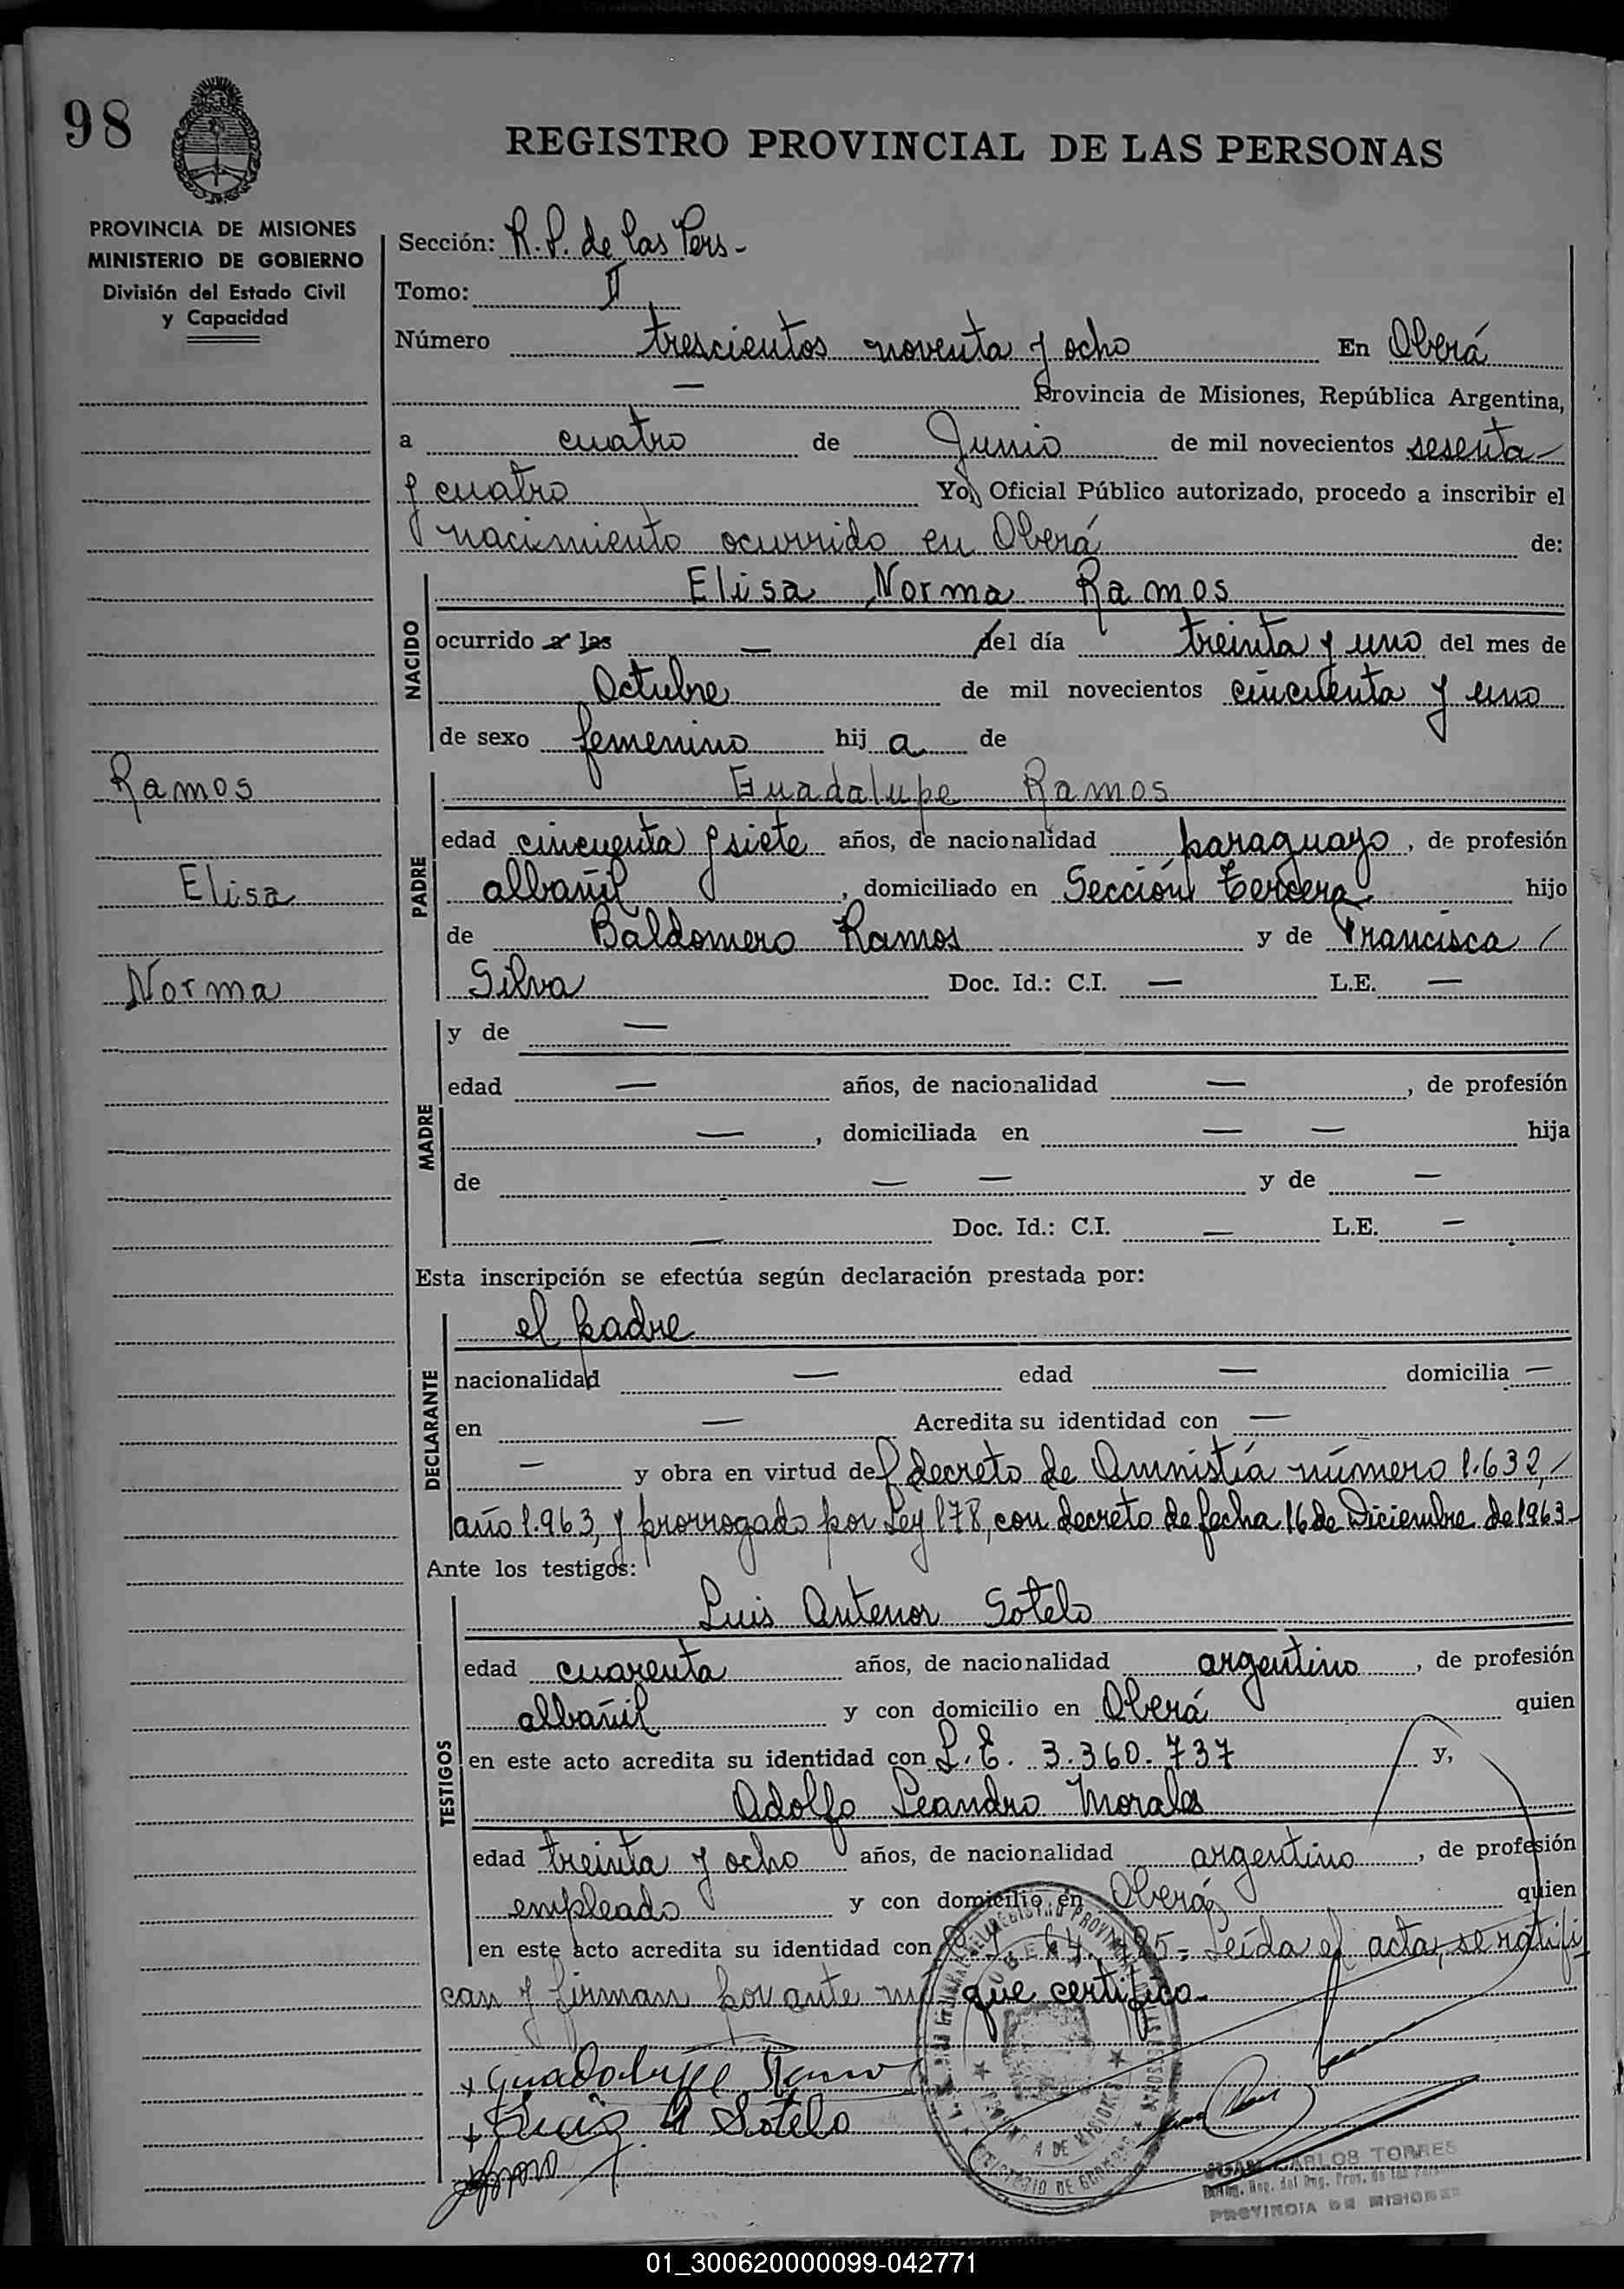 98
REGISTRO PROVINCIAL DE LAS PERSONAS
PROVINCIA DE MISIONES
MINISTERIO DE GOBIERNO
División del Estado Civil
y Capacidad
Sección: R.P. de las Pers-
Tomo: II
Número trescientos noventa y ocho En Oberá
— Provincia de Misiones, República Argentina,
a cuatro de Junio de mil novecientos sesenta-
y cuatro Yo, Oficial Público autorizado, procedo a inscribir el
nacimiento ocurrido en Oberá de:
NACIDO
Elisa Norma Ramos
ocurrido a las — del día treinta y uno del mes de
Octubre de mil novecientos cincuenta y uno
de sexo femenino hij a de
Ramos
Elisa
Norma
PADRE
Guadalupe Ramos
edad cincuenta y siete años, de nacionalidad paraguayo, de profesión
albañil, domiciliado en Sección tercera hijo
de Baldomero Ramos y de Francisca /
Silva Doc. Id.: C.I. — L.E. —
MADRE
y de —
edad — años, de nacionalidad —, de profesión
—, domiciliada en — — hija
de — — y de —
— Doc. Id.: C.I. — L.E. —
Esta inscripción se efectúa según declaración prestada por:
DECLARANTE
el padre
nacionalidad — edad — domicilia —
en — Acredita su identidad con —
— y obra en virtud del decreto de Amnistía número 1.632,/
año 1.963, y prorrogado por Ley 178, con decreto de fecha 16 de Diciembre de 1963-
Ante los testigos:
TESTIGOS
Luis Antenor Sotelo
edad cuarenta años, de nacionalidad argentino, de profesión
albañil y con domicilio en Oberá quien
en este acto acredita su identidad con L.E. 3.360.737 y,
Adolfo Leandro Morales
edad treinta y ocho años, de nacionalidad argentino, de profesión
empleado y con domicilio en Oberá quien
en este acto acredita su identidad con Leída el acta, se ratifi
can y firman por ante mí que certifico-
x Guadalupe Ramo
x Luis A Sotelo
CARLOS TORRES
PROVINCIA DE MISIONES
01_300620000099-042771